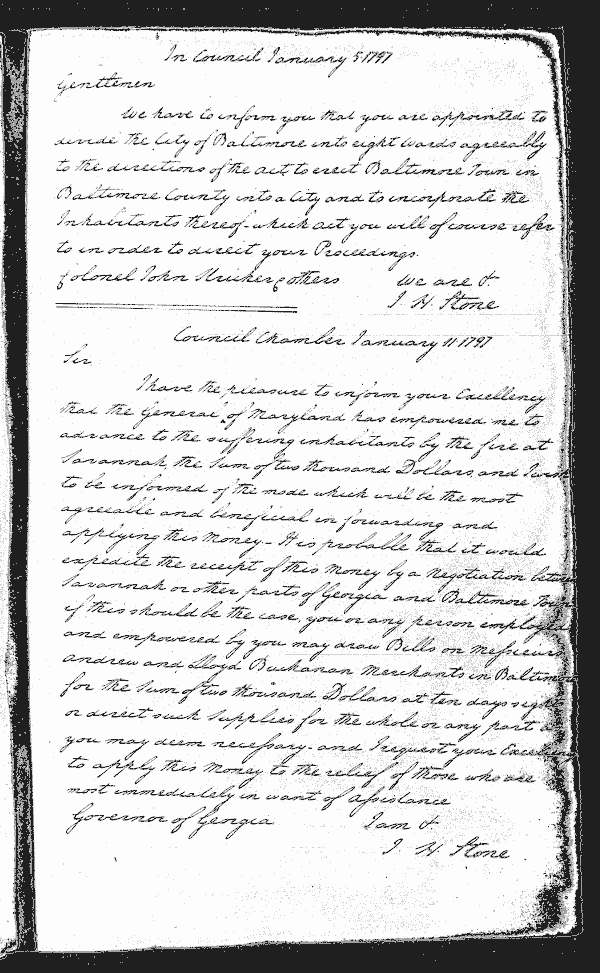 In Council January 5 1797
Gentlemen
We have to inform you that you are appointed to
divide the City of Baltimore into eight Wards agreeably
to the directions of the act to erect Baltimore Town in
Baltimore County into a City and to incorporate the
Inhabitants thereof - which act you will of course refer
to in order to direct your Proceedings.
Colonel John & others
We are &
J H Stone
Council Chamber January 11 1797
Sir
I have the pleasure to inform your Excellency
that the General of Maryland has empowered me to
advance to the suffering inhabitants by the fire at
Savannah, the Sum of two thousand Dollars, and I wish
to be informed of the mode which will be the most
agreeable and beneficial in forwarding and
applying this Money - It is probable that it would
expedite the receipt of this Money by a Negotiation betwee
Savannah or other parts of Georgia and Baltimore Town
if this should be the case, you or any person employed
and empowered by you may draw Bills on Messieurs
Andrew and Lloyd Buchanan Merchants in Baltimore
for the Sum of two thousand Dollars at ten days sight
or direct such Supplies for the whole or any part as
you may deem necessary - and I request your Excellency
to apply this Money to the relief of those who are
most immediately in want of Assistance
Governor of Georgia
I am &
J H Stone